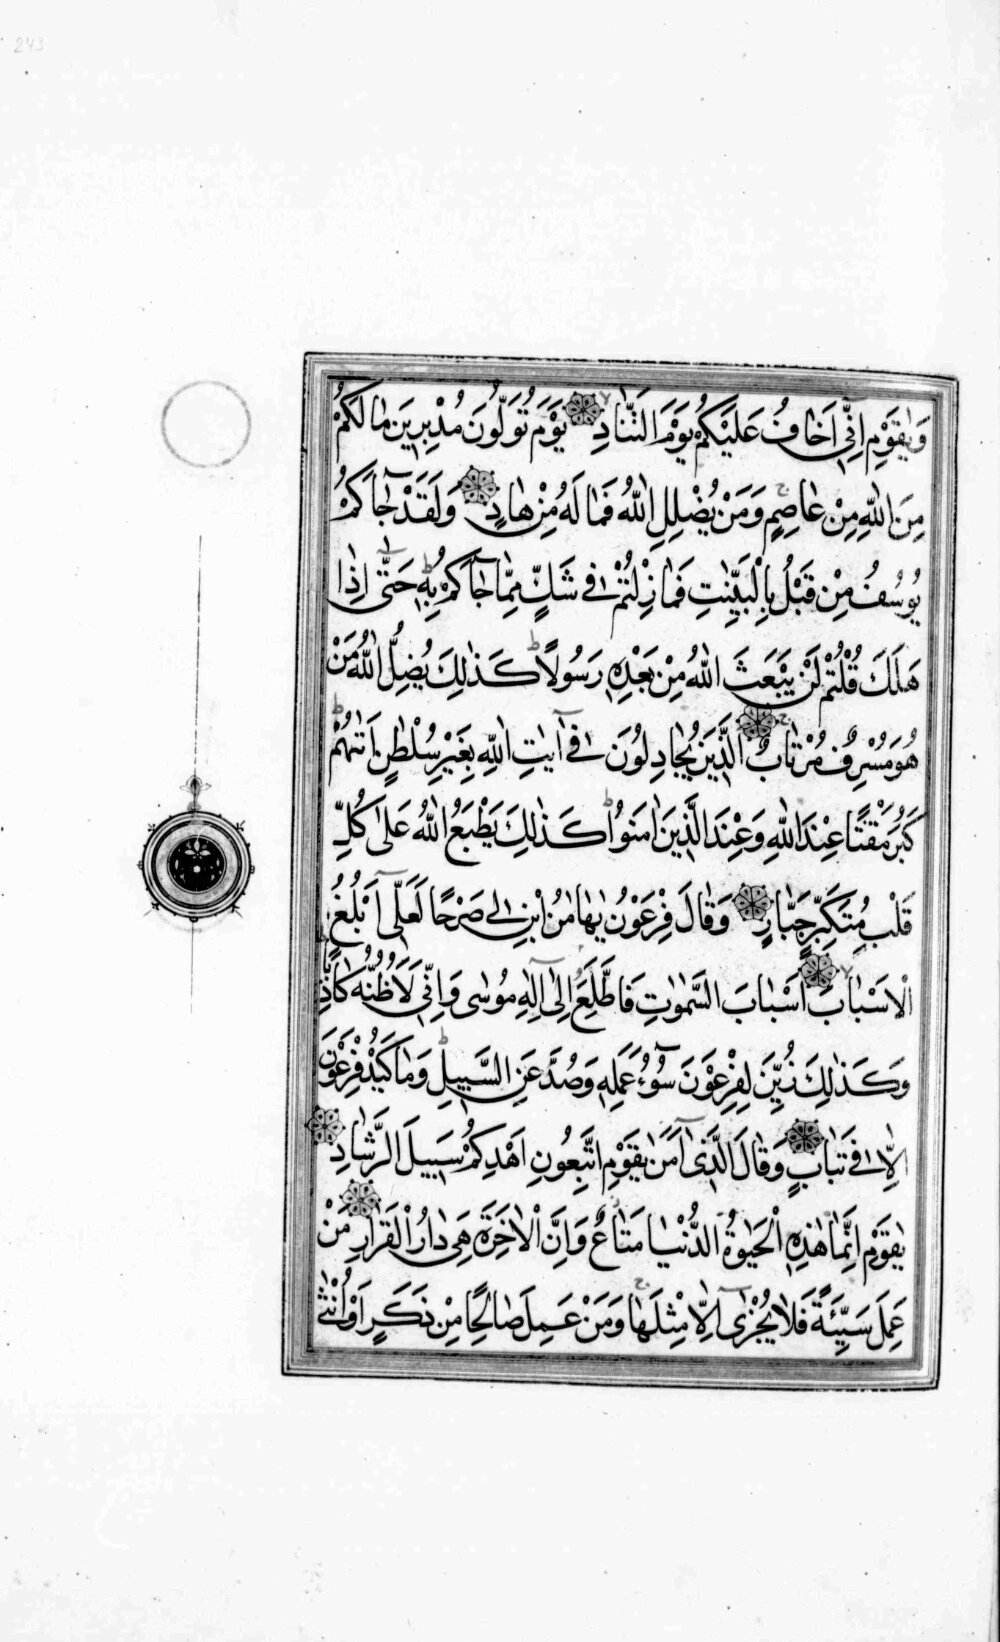 243
وَيٰقَوْمِ اِنّٖٓي اَخَافُ عَلَيْكُمْ يَوْمَ التَّنَادِ يَوْمَ تُوَلُّونَ مُدْبِرِينَ مَا لَكُمْ
مِنَ اللّٰهِ مِنْ عَاصِمٍ وَمَنْ يُضْلِلِ اللّٰهُ فَمَا لَهُ مِنْ هَادٍ وَلَقَدْ جَآءَكُمْ
يُوسُفُ مِنْ قَبْلُ بِالْبَيِّنٰتِ فَمَا زِلْتُمْ فِي شَكٍّ مِمَّا جَآءَكُمْ بِهٖ حَتّٰٓى اِذَا
هَلَكَ قُلْتُمْ لَنْ يَبْعَثَ اللّٰهُ مِنْ بَعْدِهٖ رَسُولًا كَذٰلِكَ يُضِلُّ اللّٰهُ مَنْ
هُوَ مُسْرِفٌ مُرْتَابٌ الَّذِينَ يُجَادِلُونَ فِٓي اٰيٰتِ اللّٰهِ بِغَيْرِ سُلْطٰنٍ اَتٰىهُمْ
كَبُرَ مَقْتًا عِنْدَ اللّٰهِ وَعِنْدَ الَّذِينَ اٰمَنُوا كَذٰلِكَ يَطْبَعُ اللّٰهُ عَلٰى كُلِّ
قَلْبِ مُتَكَبِّرٍ جَبَّارٍ وَقَالَ فِرْعَوْنُ يٰهَامٰنُ ابْنِ لِي صَرْحًا لَعَلِّٓي اَبْلُغُ
الْاَسْبَابَ اَسْبَابَ السَّمٰوٰتِ فَاَطَّلِعَ اِلٰٓى اِلٰهِ مُوسٰى وَاِنِّي لَاَظُنُّهُ كَاذِبًا
وَكَذٰلِكَ زُيِّنَ لِفِرْعَوْنَ سُٓوءُ عَمَلِهٖ وَصُدَّ عَنِ السَّبِيلِ وَمَا كَيْدُ فِرْعَوْنَ
اِلَّا فِي تَبَابٍ وَقَالَ الَّذٖٓي اٰمَنَ يٰقَوْمِ اتَّبِعُونِ اَهْدِكُمْ سَبِيلَ الرَّشَادِ
يٰقَوْمِ اِنَّمَا هٰذِهِ الْحَيٰوةُ الدُّنْيَا مَتَاعٌ وَاِنَّ الْاٰخِرَةَ هِيَ دَارُ الْقَرَارِ مَنْ
عَمِلَ سَيِّئَةً فَلَا يُجْزٰٓى اِلَّا مِثْلَهَا وَمَنْ عَمِلَ صَالِحًا مِنْ ذَكَرٍ اَوْ اُنْثٰى